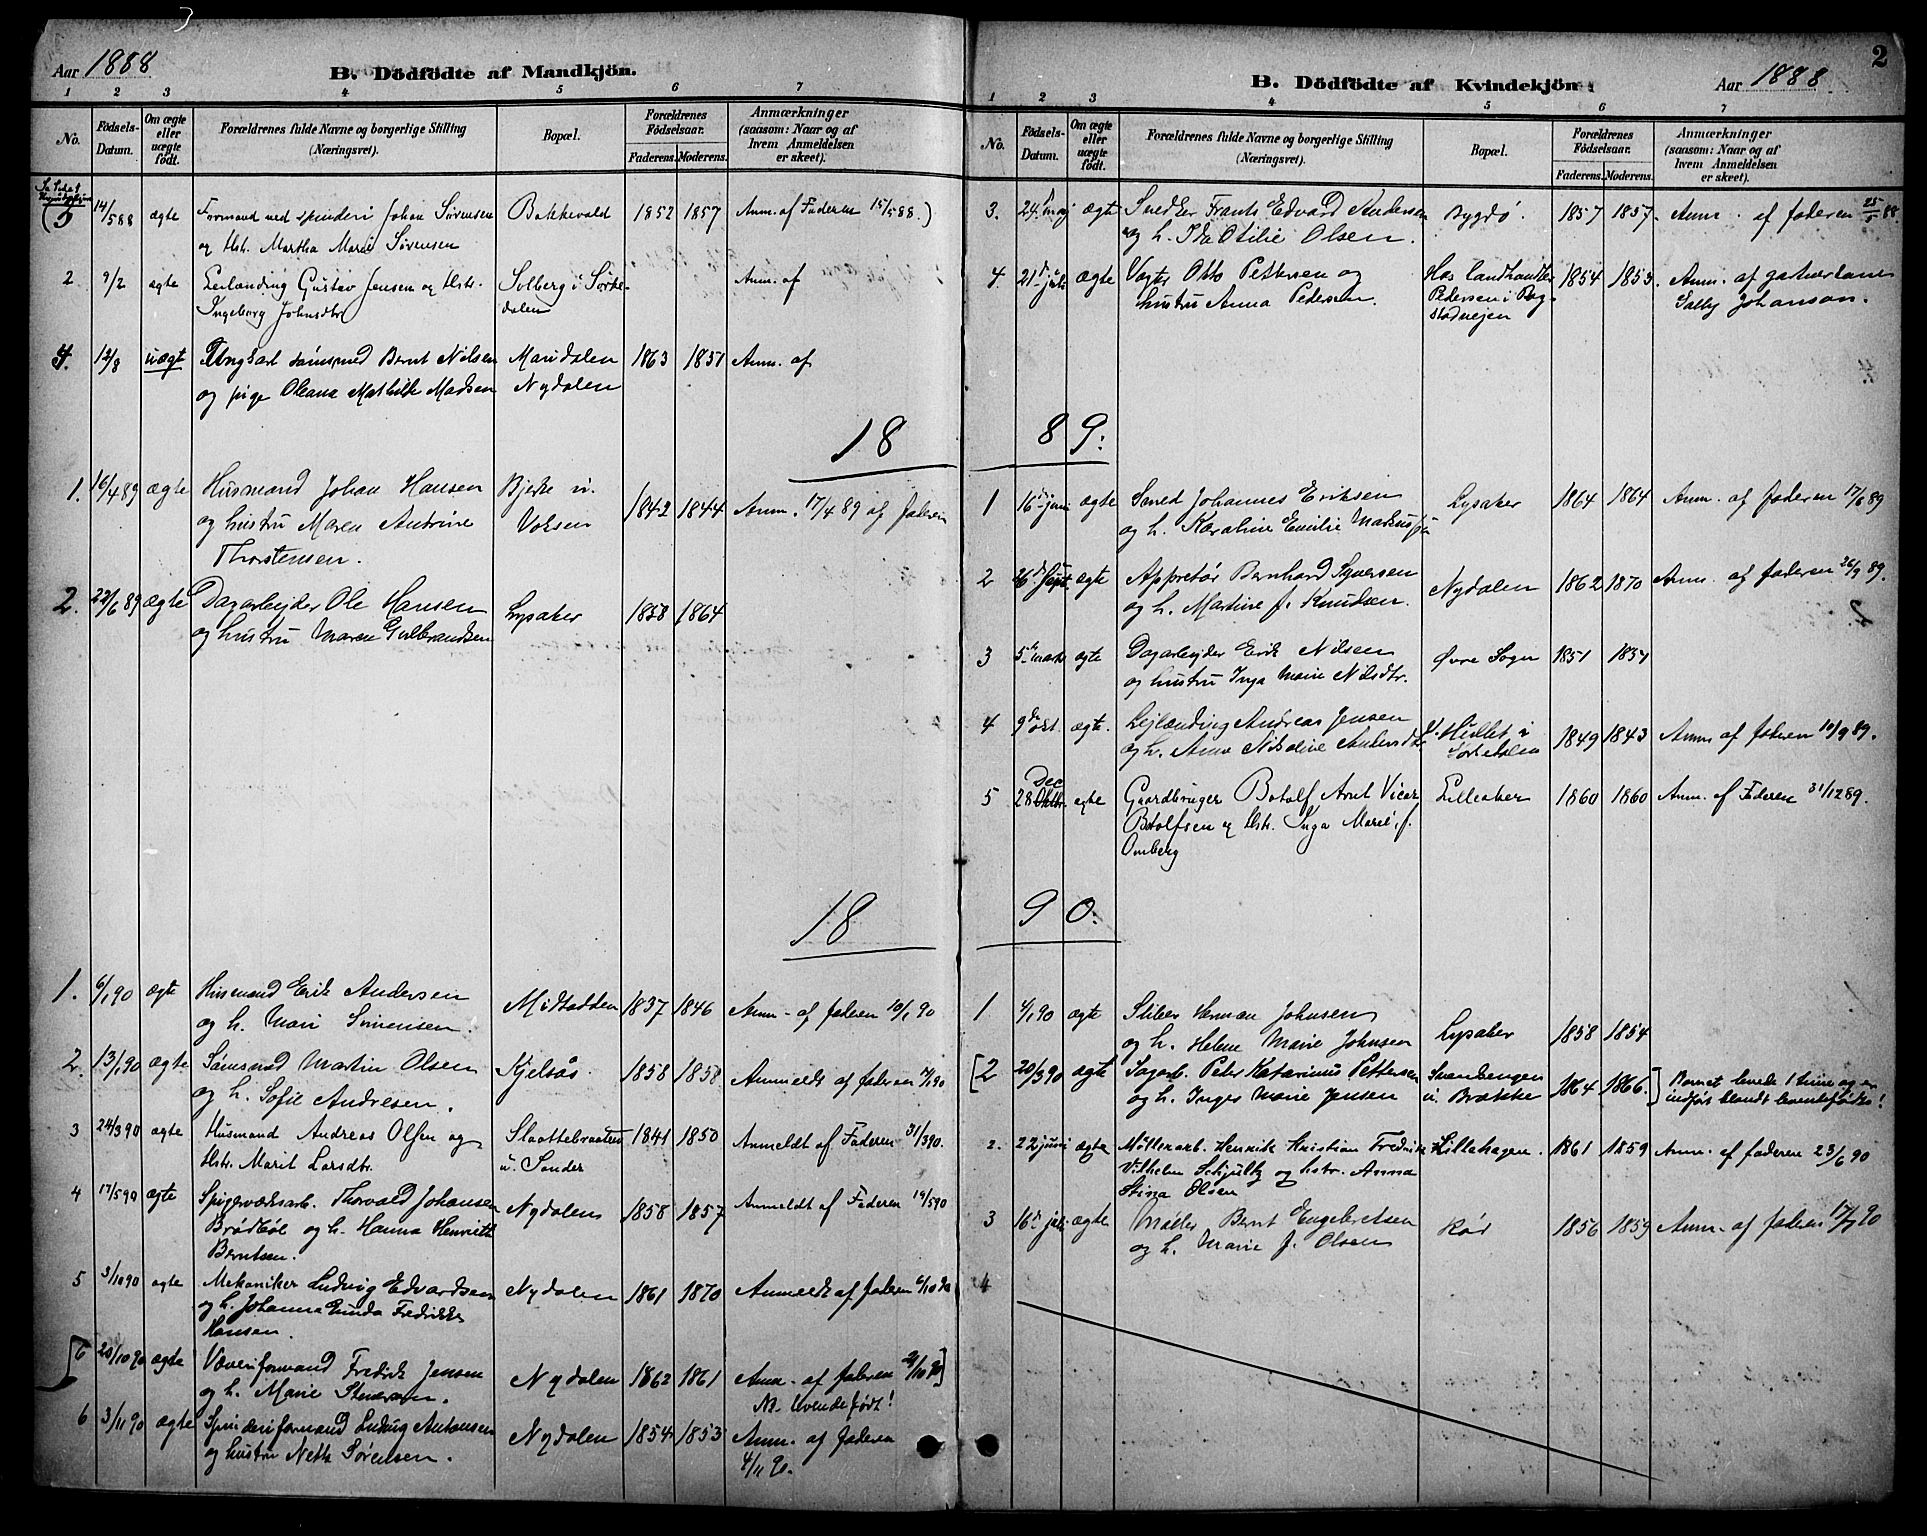 Aar 1888
B. Dödfödte af Mandkjön.
1 2 3 4 5 6 7
No.
Födsels-Datum.
Om ægte eller uægte födt.
Forældrenes fulde Navne og borgerlige Stilling
(Næringsvei).
Bopæl.
Forældrenes Födselsaar.
Faderens. Moderens.
Anmærkninger
(saasom: Naar og af
hvem Anmeldelsen
er skeet).
(5 14/5 88 ægte Formand ved spinderi Johan Sørensen Bakkevold 1852 1857 Anm. af Faderen 15/5 88.)
og Hst. Martha Marie Sørensen
2 9/2 ægte Leilænding Gustav Jensen og Hstr. Solberg i Sørke- Anm. af
Ingeborg Johnsdtr dalen
4. 12/8 uægt Bernt Nilsen Maridalen 1863 1851 Anm. af
og pige Oleana Mathilde Madsen Nydalen
18
1. 16/4 89 ægte Husmand Johan Hansen Bjerke u. 1842 1844 Anm. 17/4 89 af faderen
og hustru Maren Antrine Voksen
Thorstensen.
2. 22/6 89 ægte Dagarbejder Ole Hansen Lysaker 1858 1864
og hustru Maren Gulbrandsen
18
1. 6/1 90 ægte Husmand Erik Andersen Midtodden 1837 1846 Anm. af faderen 10/1 90
og h. Mari Simensen.
2. 13/1 90 ægte Martin Olsen Kjelsås. 1858 1858 Anmeldt af faderen /1 90
og h. Sofie Andresen.
3 24/3 90 ægte Husmand Andreas Olsen og Slaattebraaten 1841 1850 Anmeldt af Faderen 31/3 90.
Hstr. Marit Larsdtr. u. Sander
4 17/5 90 ægte Spigerværksarb. Thorvald Johansen Nydalen 1858 1857 Anmeldt af Faderen 19/5 90
Brødbøl og h. Hanna Henriette
Berntsen.
5 3/10 90 ægte Mekaniker Ludvig Edvardsen Nydalen 1861 1870 Anmeldt af faderen 6/10 90
og h. Johanna Gunda Fredrikke
Hansen.
[6 20/10 90 ægte Væveriformand Fredrik Jensen Nydalen 1862 1861 Anm. af faderen /10 90]
og h. Marie NB. levende født!
6 3/11 90 ægte Spinderiformand Ludvig Antonsen Nydalen 1854 1853 Anm. af faderen
og hustru Nette Sørensen. 4/11 90.
2
B. Dödfödte af Kvindekjön.
Aar 1888
1 2 3 4 5 6 7
No.
Födsels-Datum.
Om ægte eller uægte födt.
Forældrenes fulde Navne og borgerlige Stilling
(Næringsvei).
Bopæl.
Forældrenes Födselsaar.
Faderens. Moderens.
Anmærkninger
(saasom: Naar og af
hvem Anmeldelsen
er skeet).
3. 24. maj ægte Snedker Frants Edvard Andersen Bygdø. 1857 1857. Anm. af faderen 25/5 88
og h. Ida Otilie Olsen.
4. 21 d juli ægte Vogter Otto Pettersen og Hos landhandler 1854 1853. Anm. af
hustru Anna Pedersen. Pedersen i Bog- Johanson.
stadvejen
89.
1 16 d juni ægte Smed Johannes Eriksen Lysaker 1864 1864 Anm. af faderen 17/6 89
og h. Karoline Emilie
2 26 d Sept ægte Appretør Bernhard Syversen Nydalen 1862 1870 Anm. af faderen 30/9 89.
og h. Martine f. Knudsen.
3 5 marts ægte Dagarbejder Erik Nilsen Øvre Sogn 1851 1851
og hustru Inga Marie Nilsdtr.
4 9 de okt. ægte. Lejlænding Andreas Jensen Hullet i 1849 1843 Anm. af faderen 10/9 89.
og h. Anna Nikoline Andersdtr Sørkedalen
Dec
5 28 Oktbr. ægte Gaardbruger Botolf Arnt Vicar Lilleaker 1860 1860 Anm. af Faderen 31/12 89.
Botolfsen og Hstr. Inga Marie, f.
Omberg
90.
1 4/1 90 ægte Sliber Herman Johnsen Lysaker 1858 1854
og h. Helene Marie Johnsen
[2 20/3 90 ægte Sagarb. Peter Katarinus Pettersen Svenbengen 1864 1866.] Barnet levede 1 time og er
og h. Inger Marie Jensen u. Brække indført blandt levendefødte!
2. 22 juni ægte Møllerarb. Henrik Kristian Fredrik Lillehagen. 1861 1859 Anm. af faderen 23/6 90
Vilhelm Schjultz og hstr. Anna
Stina Olsen
3 16 d juli ægte Møller Bernt Engebretsen Rød 1856 1859 Anm. af faderen 17/7 90
og h. Marie f. Olsen
4